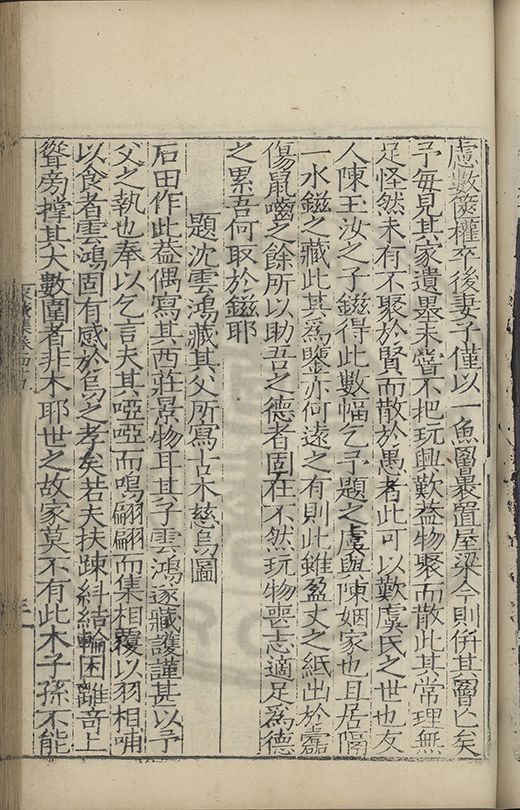 慮數篋權卒後妻子僅以一魚罶裹置屋梁今則併其罶亡矣
予每見其家遺墨未嘗不把玩興歎蓋物聚而散此其常理無
足怪然未有不聚於賢而散於愚者此可以歎虞氏之世也友
人陳玉汝之子鎡得此數幅乞予題之虞與陳姻家也且居隔
一水鎡之藏此其為鑒亦何遠之有則此雖盈丈之紙出於蠹
傷鼠嚙之餘所以助吾之德者固在不然玩物喪志適足為德
之累吾何取於鎡耶
題沈雲鴻藏其父所寫古木慈烏圖
石田作此蓋偶寫其西莊景物耳其子雲鴻遂藏護謹甚以予
父之執也奉以乞言夫其啞啞而鳴翩翩而集相覆以羽相哺
以食者雲鴻固有感於烏之孝矣若夫扶踈糾結輪囷離奇上
聳旁撑其大數圍者非木耶世之故家莫不有此木子孫不能
家藏集卷